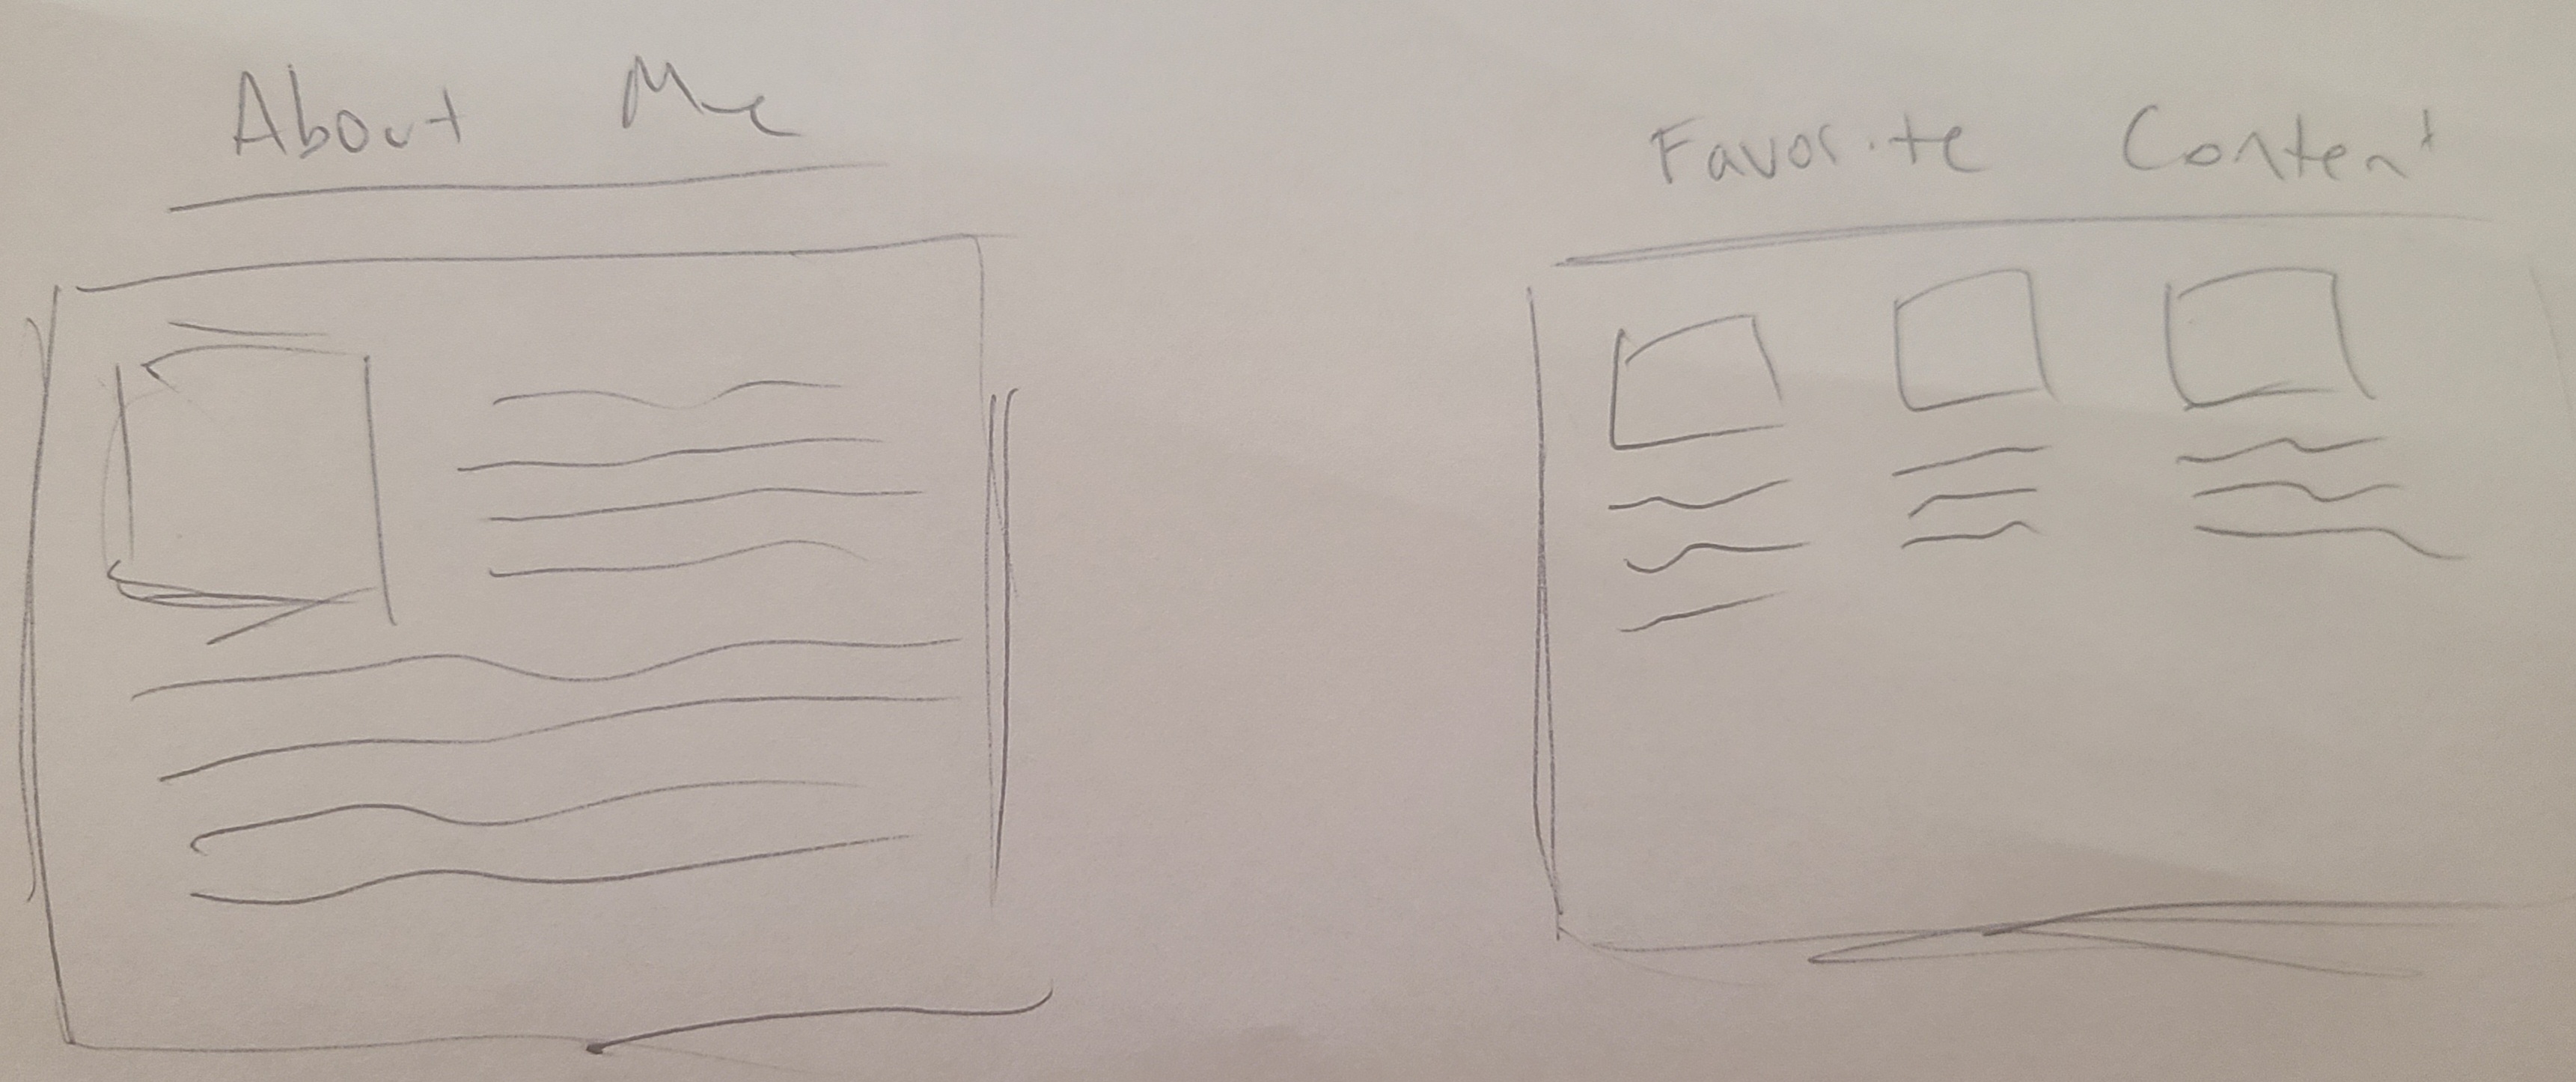 About Me
Favorite Content